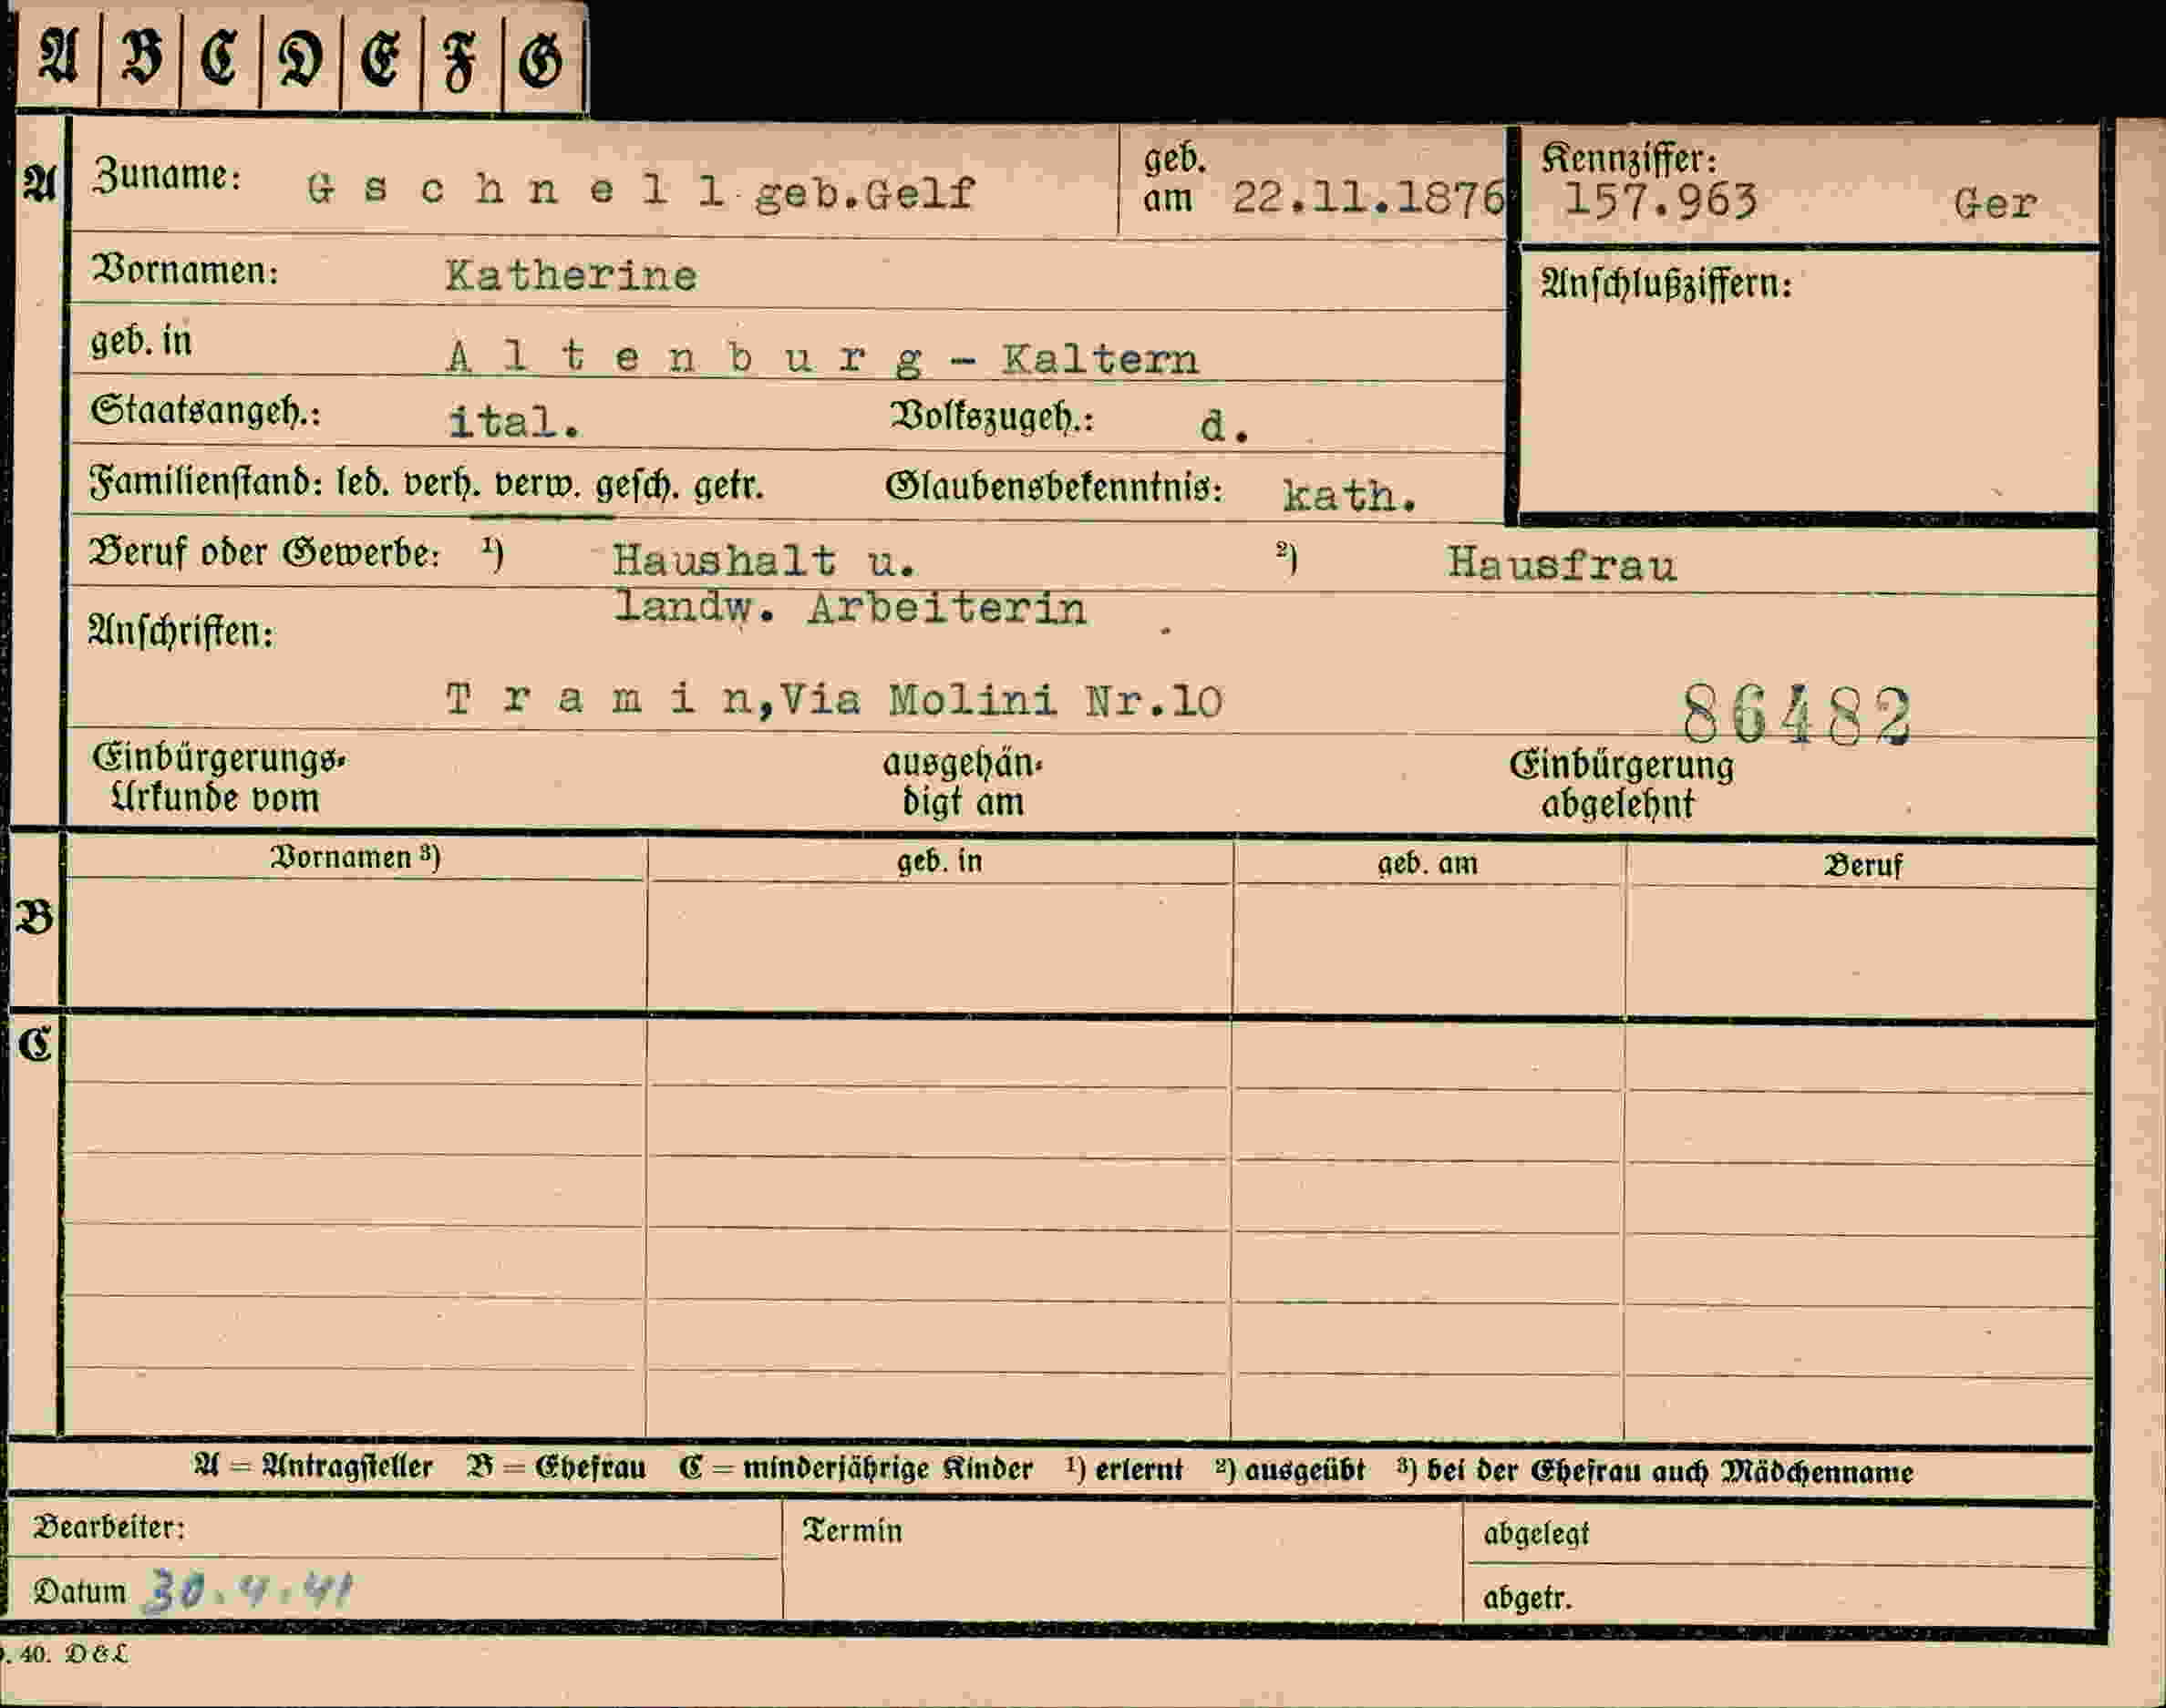 A B C D E F G
A Zuname: G s c h n e l l geb.Gelf geb. am 22.11.1876 Kennziffer: 157.963 Ger
Vornamen: Katherine Anschlußziffern:
geb. in A l t e n b u r g - Kaltern
Staatsangeh.: ital. Volkszugeh.: d.
Familienstand: led. verh. verw. gesch. getr. Glaubensbekenntnis: kath.
Beruf oder Gewerbe: ¹) Haushalt u. ²) Hausfrau
landw. Arbeiterin
Anschriften:
T r a m i n,Via Molini Nr.10 86482
Einbürgerungs- ausgehän- Einbürgerung
Urkunde vom digt am abgelehnt
Vornamen ³) geb. in geb. am Beruf
B
C
A = Antragsteller B = Ehefrau C = minderjährige Kinder ¹) erlernt ²) ausgeübt ³) bei der Ehefrau auch Mädchenname
Bearbeiter: Termin abgelegt
Datum 30.4.41 abgetr.
. 40. D & L